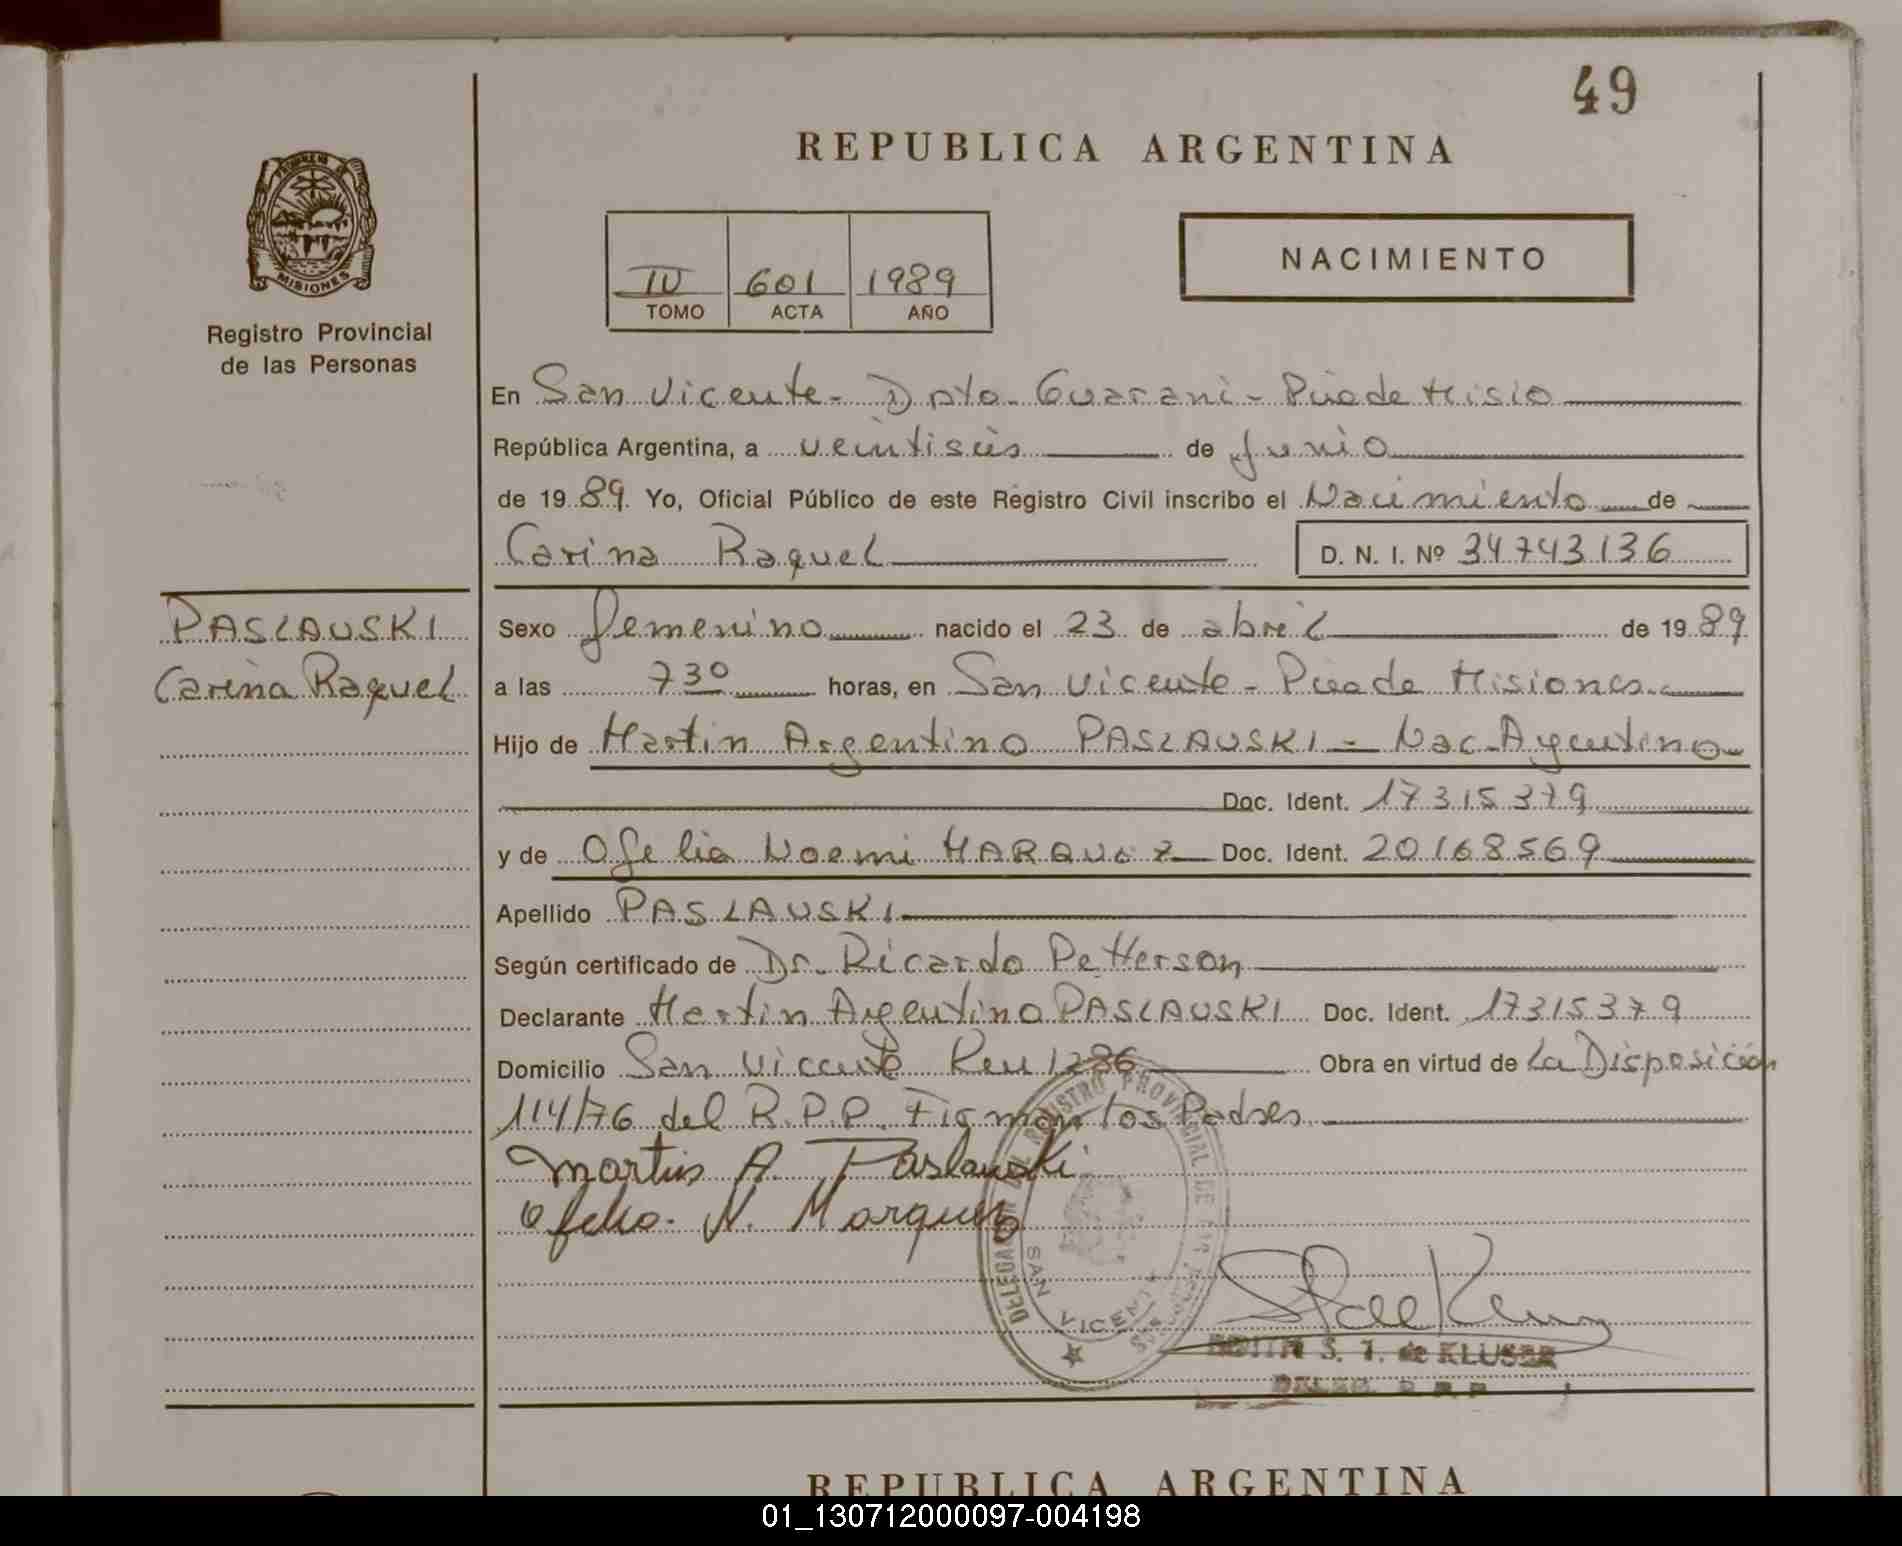 49
REPUBLICA ARGENTINA
MISIONES
Registro Provincial
de las Personas
IV 601 1989
TOMO ACTA AÑO
NACIMIENTO
En San Vicente - Dpto. Guarani - Pcia de Misio
República Argentina, a veintiseis de Junio
de 1989. Yo, Oficial Público de este Registro Civil inscribo el Nacimiento de
Carina Raquel D. N. I. Nº 34.743.136
PASLAUSKI
Carina Raquel
Sexo femenino nacido el 23 de abril de 1989
a las 7 30 horas, en San Vicente - Pcia de Misiones
Hijo de Martin Argentino PASLAUSKI - Nac. Argentino
Doc. Ident. 17.315.379
y de Ofelia Noemi MARQUEZ Doc. Ident. 20.168.569
Apellido PASLAUSKI
Según certificado de Dr. Ricardo Petterson
Declarante Martin Argentino PASLAUSKI Doc. Ident. 17315379
Domicilio San Vicente Km 1286 Obra en virtud de La Disposición
114/76 del R.P.P. Firman los Padres
Martin A. Paslauski
Ofelia N. Marquez
DELEGACION DEL REGISTRO PROVINCIAL DE LAS PERSONAS
SAN VICENTE
S. T. de KLUSER
REPUBLICA ARGENTINA
01_130712000097-004198